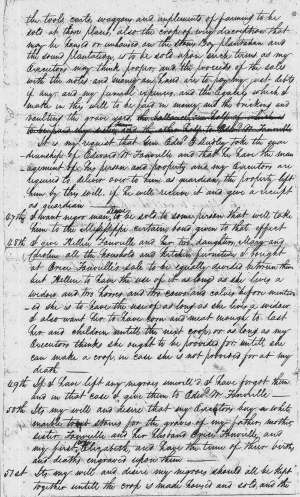 the tools carts, waggon and implements of farming to be
sold at these places, also the crop of every description that
may be housed or unhoused, on the Stones Bay plantation and
the Sound plantation, is to be sold upon such terms as my
Executors may think proper, and the proceeds of the sales
with the notes and money on hand are to pay my just debts
if any and my funeral expences, and the legacies which I
make in this will to be paid in money and the bricking and
vaulting the grave yard,
It is my request that Gen. Edwd B. Dudley take the guar
dianship of Edward W. Fonville and that he have the man
agement of his person and property and my Executors are
required to deliver over to him as guardian, the property left
him by this will, if he will receive it and give a receipt
as guardian
47th I want negro man, to be sold to some person that will take
him to the Mississippi certain, bond given to that effect
48th I give Hellen Fonville and her two daughters Mary and
all the household and kitchen furniture I bought
at Brice Fonville's sale to be equally divided between them
but Hellen to have the use of it as long as she lives a
widow, and the horses and the
is she is to have the use of as long as she lives a widow
I also want her to have corn and meat enough to last
her and children untill the next crop, or as long as my
Executors thinks she ought to be provided for untill she
can make a crop in case she is not provided for at my
death
49th If I have left any negroes unwill'd I have forgot them
and in that case I give them to Edwd W. Fonville
50th Its my will and desire that my Executors buy a white
marble tomb stones for the graves of my father, mother
sister Fonville and her husband Brice Fonville, and
my first wife Elizabeth, and have the time of their birth
and death, engraved upon them
51st Its my will and desire my negroes should all be kept
together untill the crop is made, housed and sold, and the